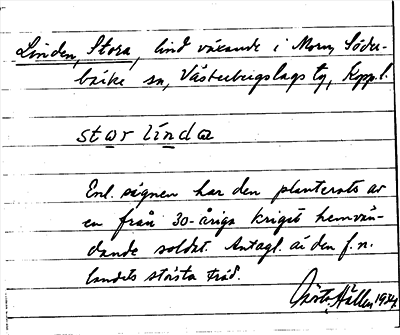 Linden, Stora, lind växande i Morn, Söder-
bärke sn, Västerbergslags tg, Kopp. l.
star linda
Enl. sägnen har den planterats av
en från 30-åriga kriget hemvän-
dande soldat. Antagl. är den f.n.
landets största träd.
Gösta Hällen 1934